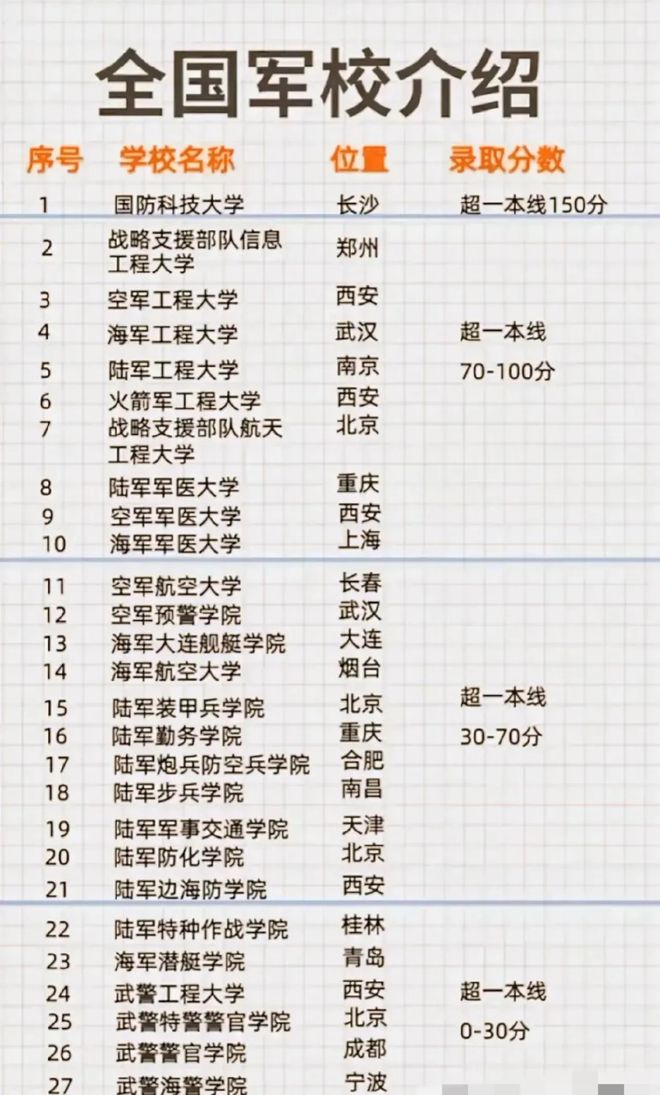 全国军校介绍
序号 学校名称 位置 录取分数
1 国防科技大学 长沙 超一本线150分
2 战略支援部队信息 郑州
工程大学
3 空军工程大学 西安
4 海军工程大学 武汉 超一本线
5 陆军工程大学 南京 70-100分
6 火箭军工程大学 西安
7 战略支援部队航天 北京
工程大学
8 陆军军医大学 重庆
9 空军军医大学 西安
10 海军军医大学 上海
11 空军航空大学 长春
12 空军预警学院 武汉
13 海军大连舰艇学院 大连
14 海军航空大学 烟台
超一本线
15 陆军装甲兵学院 北京
16 陆军勤务学院 重庆 30-70分
17 陆军炮兵防空兵学院 合肥
18 陆军步兵学院 南昌
19 陆军军事交通学院 天津
20 陆军防化学院 北京
21 陆军边海防学院 西安
22 陆军特种作战学院 桂林
23 海军潜艇学院 青岛
24 武警工程大学 西安 超一本线
25 武警特警警官学院 北京 0-30分
26 武警警官学院 成都
27 武警海警学院 宁波